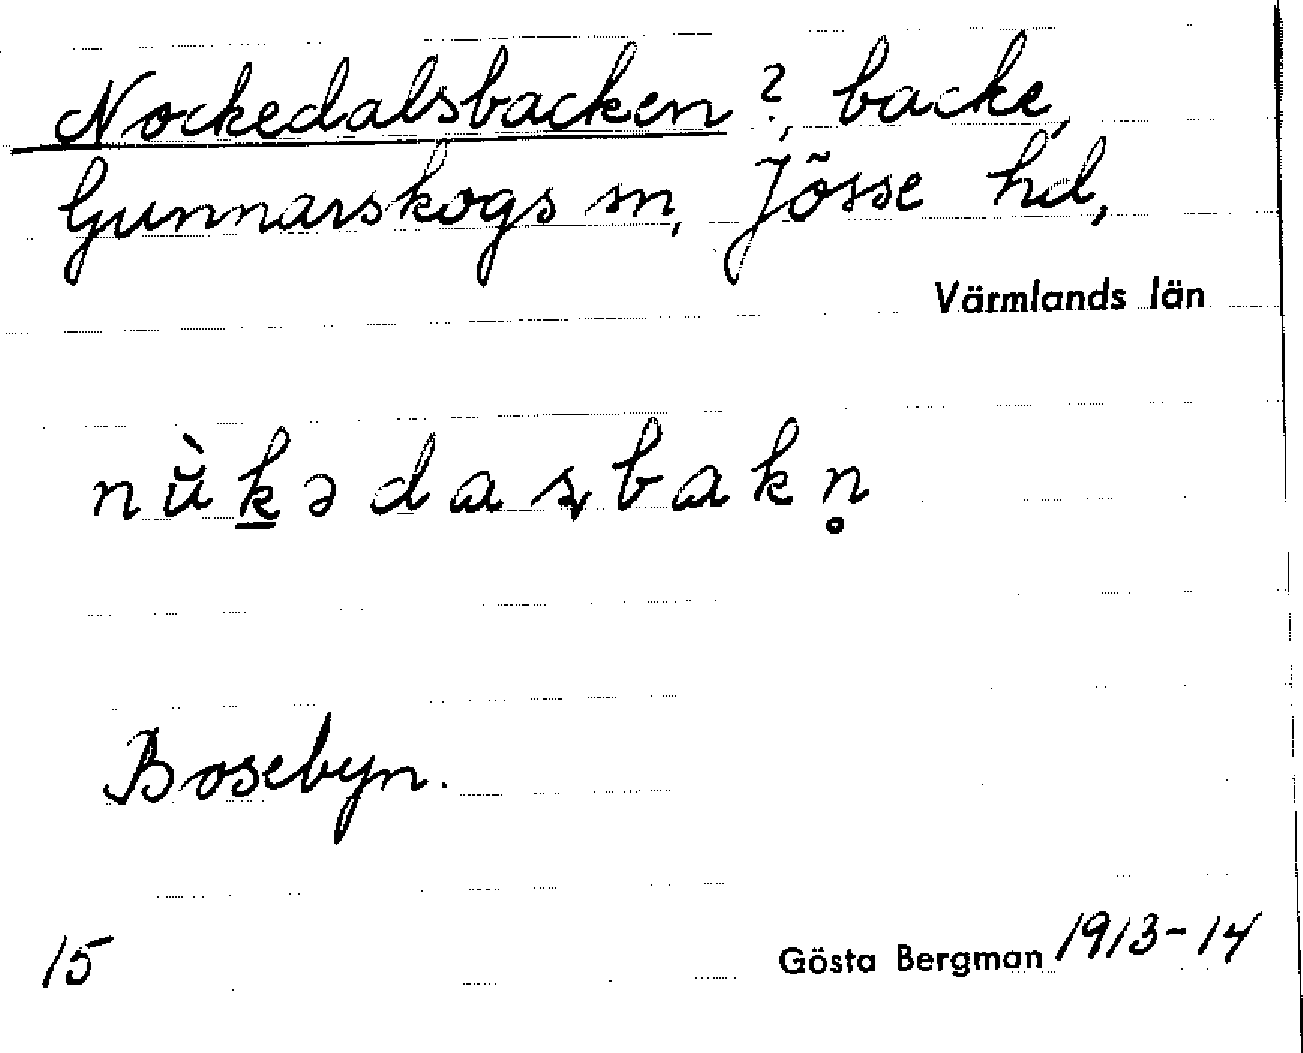 Nockedalsbacken?, backe,
Gunnarskogs sn, Jösse hd,
Värmlands län
nu᷇̀ḵədaʂbakn̥
Bosebyn.
15
Gösta Bergman 1913-14